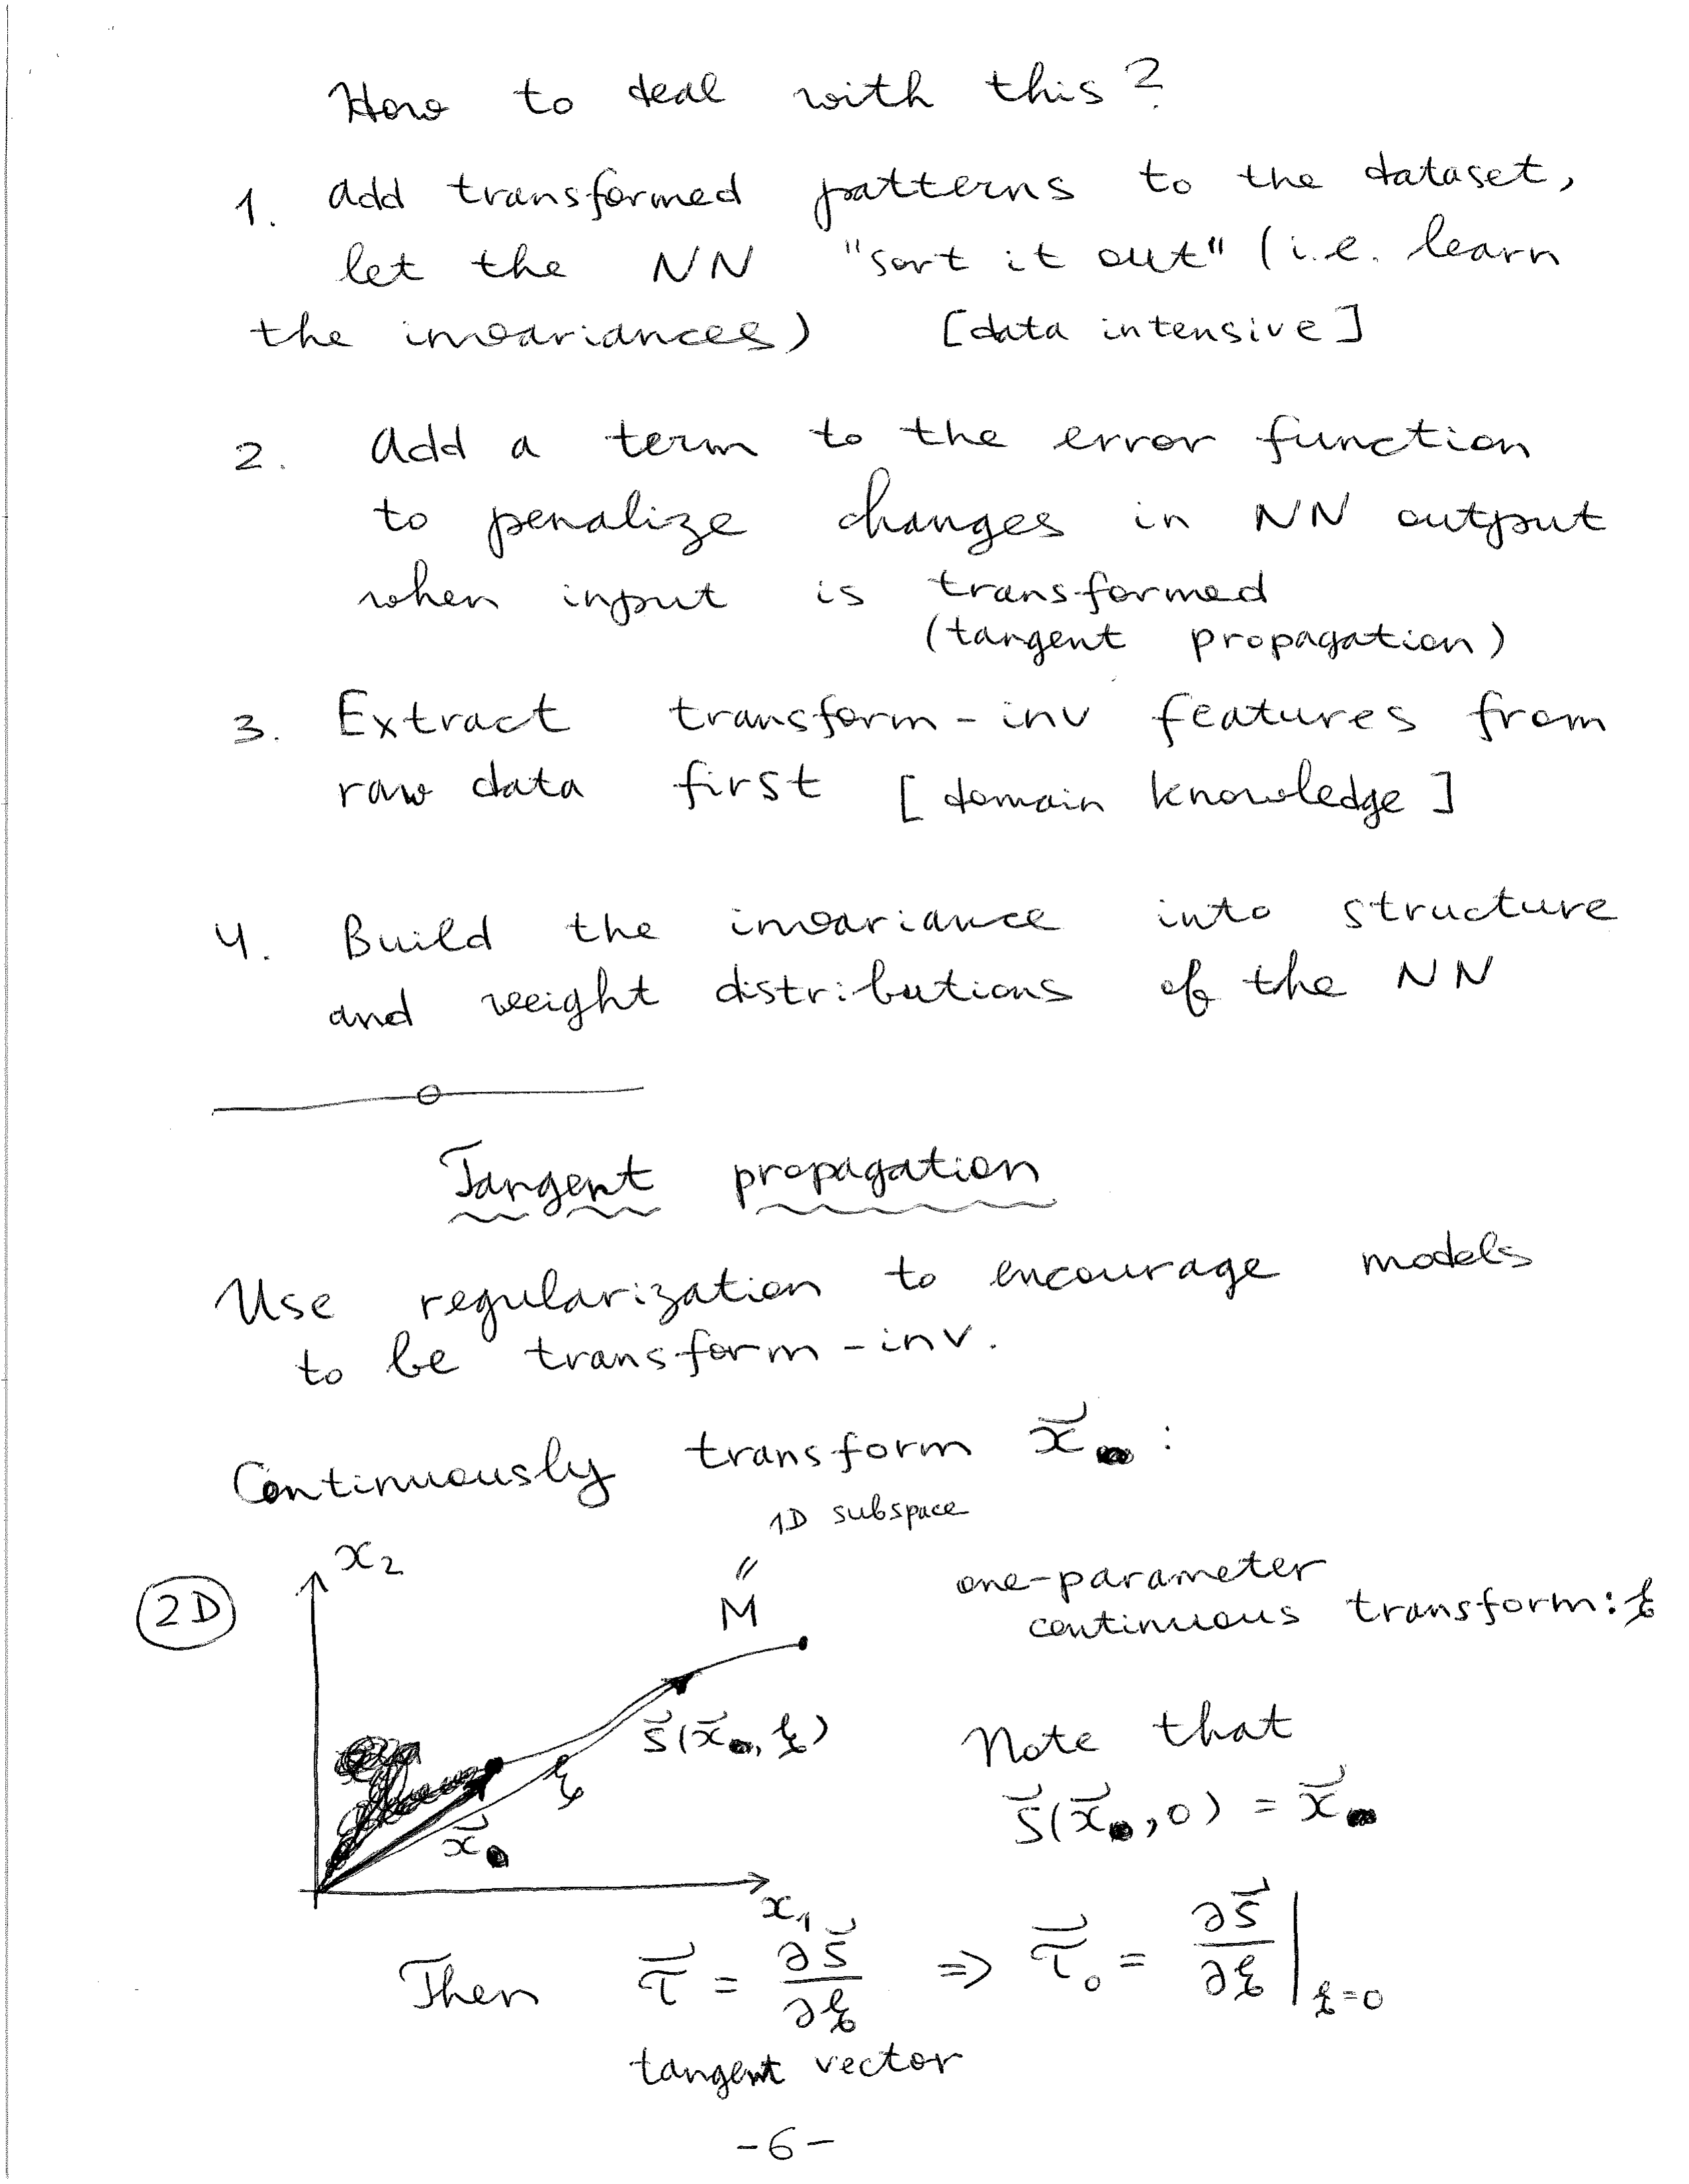 How to deal with this?
1. Add transformed patterns to the dataset,
let the NN "sort it out" (i.e. learn
the invariances) [data intensive]
2. Add a term to the error function
to penalize changes in NN output
when input is transformed
(tangent propagation)
3. Extract transform-inv features from
raw data first [domain knowledge]
4. Build the invariance into structure
and weight distributions of the NN
Tangent propagation
Use regularization to encourage models
to be transform-inv.
Continuously transform x⃗ :
1D subspace
2D
x₂
"
M
one-parameter
continuous transform: ξ
s⃗(x⃗, ξ)
ξ
x⃗
x₁
Note that
s⃗(x⃗, 0) = x⃗
Then τ⃗ = ∂s⃗/∂ξ ⇒ τ⃗₀ = ∂s⃗/∂ξ |ξ=0
tangent vector
-6-